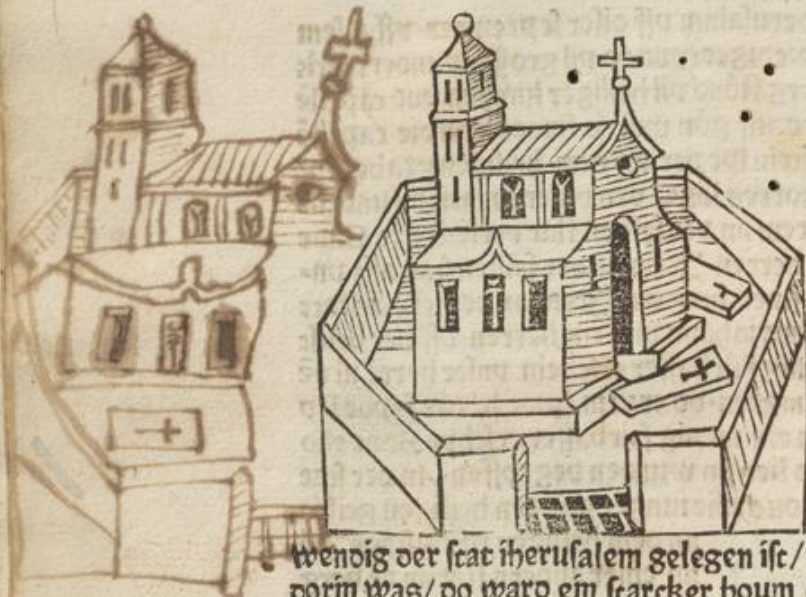 wendig der stat iherusalem gelegen ist/
dorin was/ do ward ein starcker boum